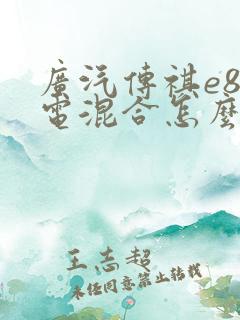 廣汽傳祺e8
電混合怎麼
王志超
未経同意禁止转载